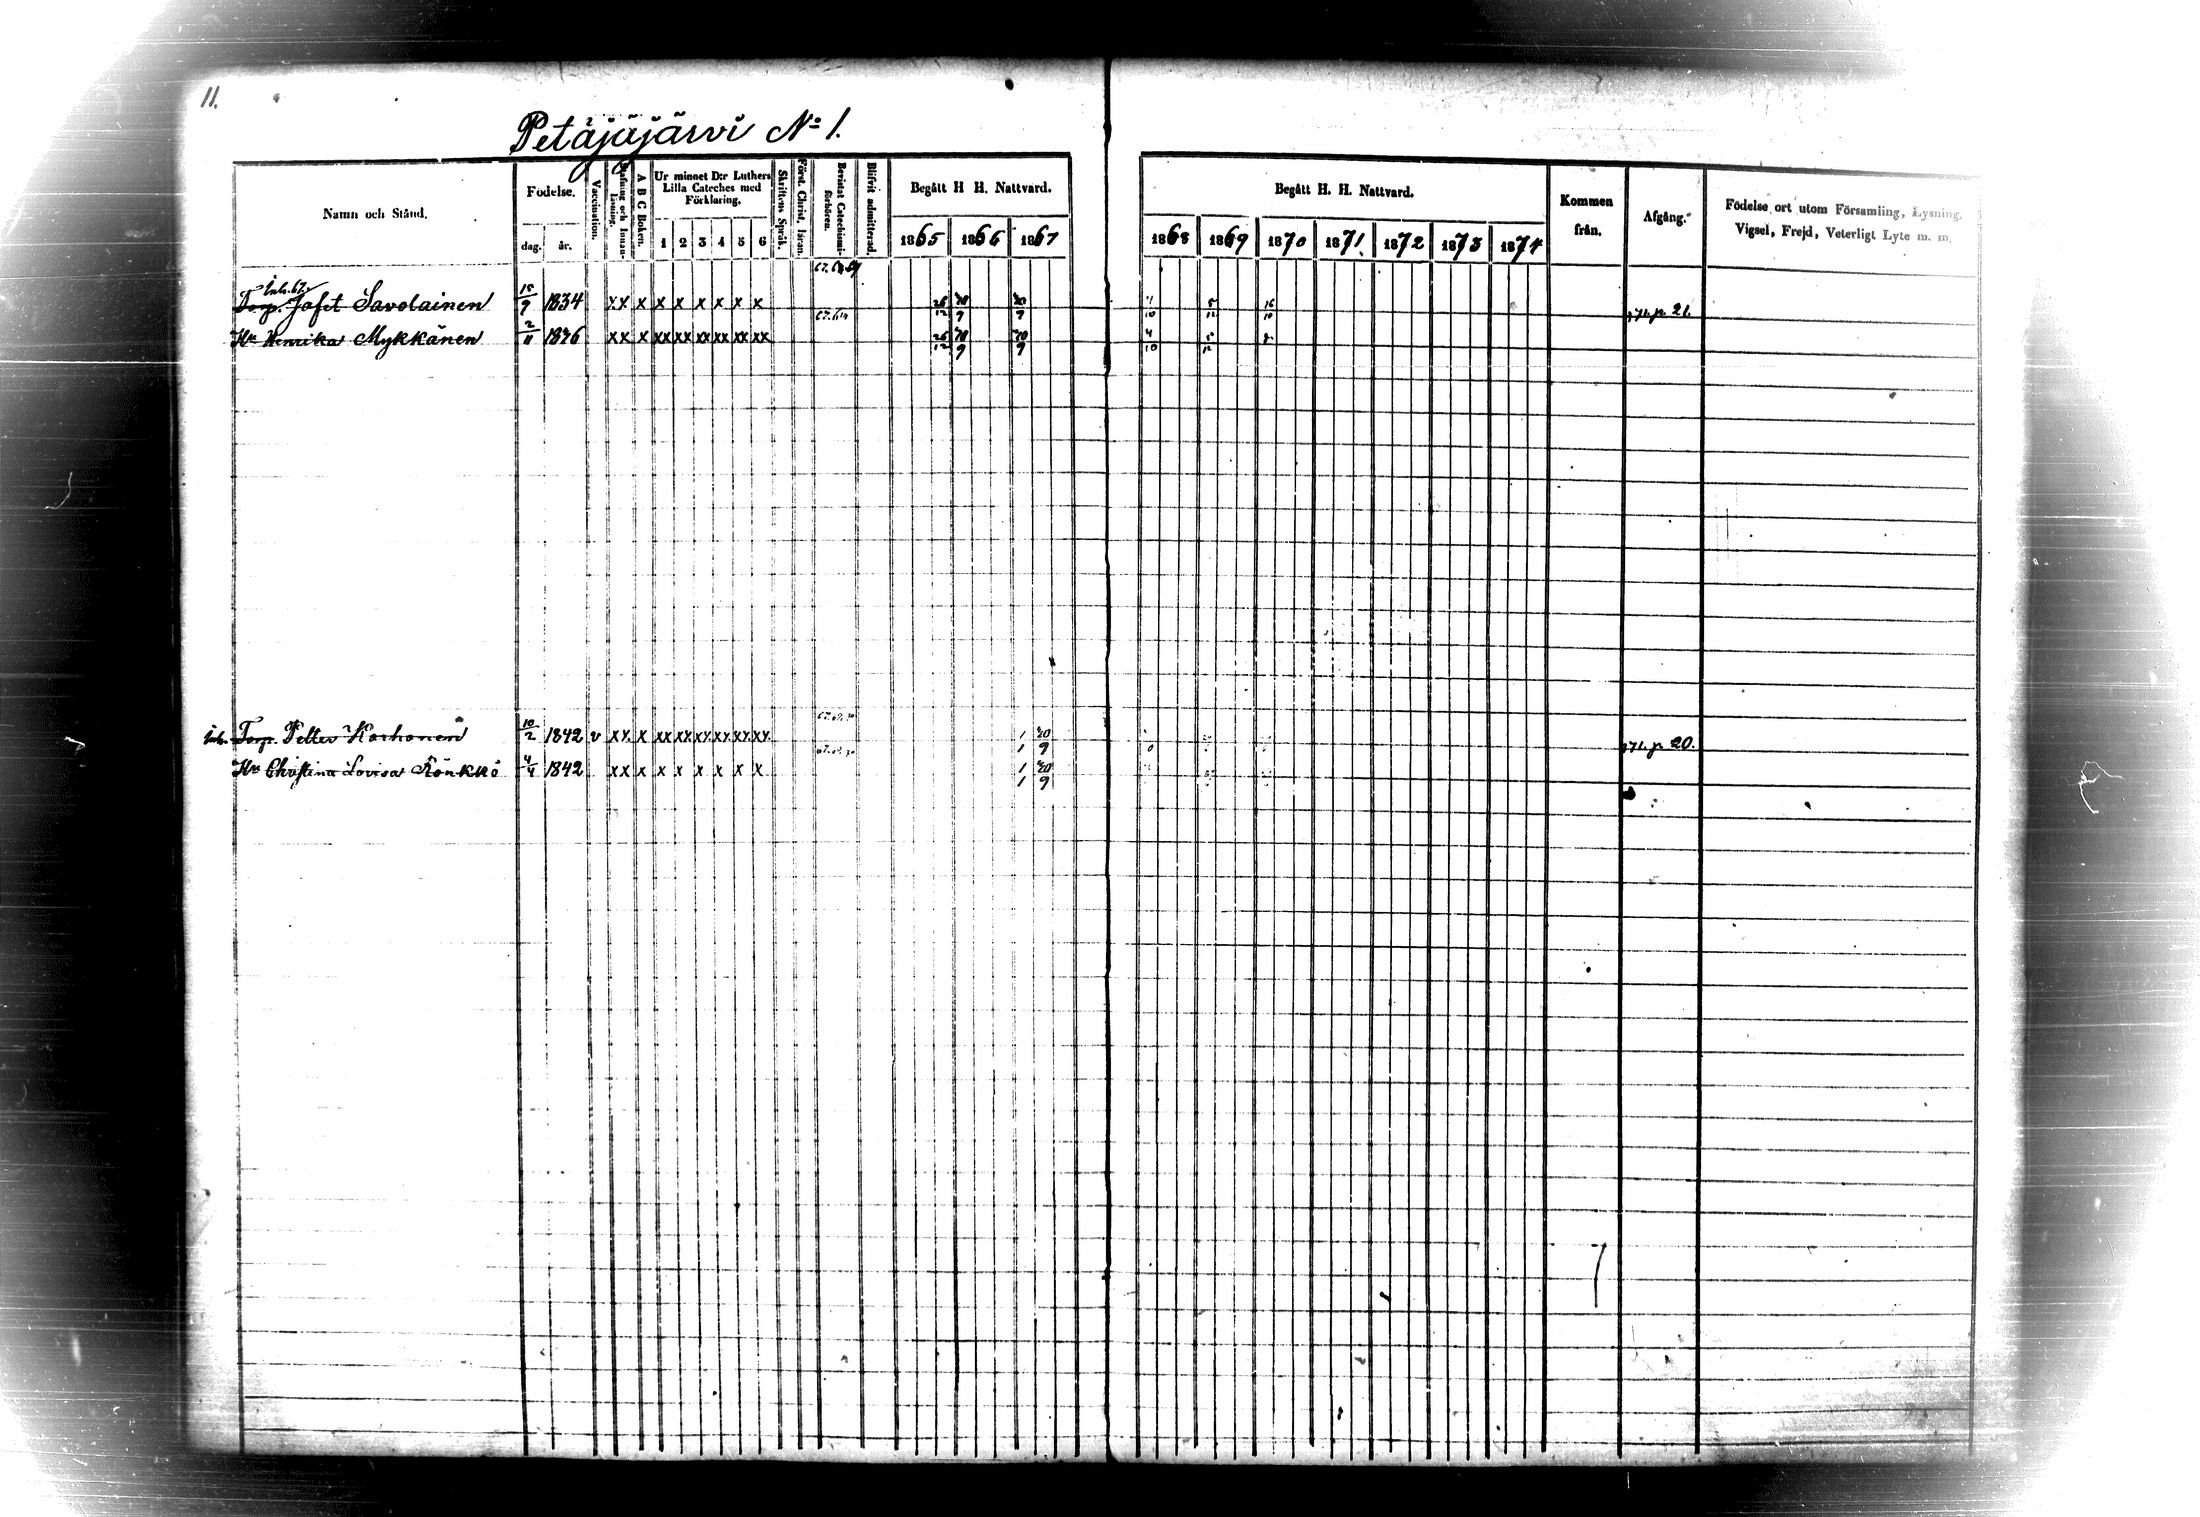 11.
Petäjäjärvi No 1.
Namn och Stånd.
Födelse.
dag.
år.
Vaccination.
A B C Boken.
Ur minnet D:r Luthers
Lilla Cateches med
Förklaring.
1 2 3 4 5 6
Skriftens Språk.
Först. Christ. läran.
Bevistat Catechismi-
förhören.
Blifvit admitterad.
Begått H H. Nattvard.
1865 1866 1867
Begått H. H. Nattvard.
1868 1869 1870 1871. 1872 1873 1874
Kommen
från.
Afgång.
Födelse ort utom Församling, Lysning,
Vigsel, Frejd, Veterligt Lyte m. m.
Inh. 67.
Torp. Jafet Savolainen 15/9 1834 x x x x x x x x x 26/12 20/9 20/9 4/10 5/12 16/10 71. p. 21.
Hu Henrika Mykkänen 2/11 1836 xx x xx xx xx xx xx xx 26/12 20/9 20/9 4/10 5/12
Inh. Torp. Petter Karhonen 10/2 1842 v xx x xx xx xx xx xx xx 1/1 20/9 71. p. 20.
Hu Christina Lovisa Rönkkö 4/4 1842 xx x x x x x x x 1/1 20/9